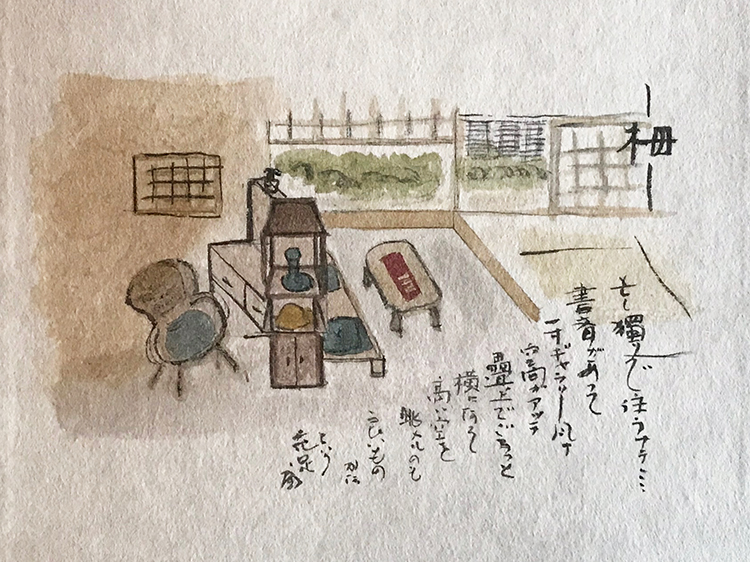 柵
もし獨りで住うナラ…
書斎があって
一寸ギャラリー風ナ
空間がアッテ
畳上でごろっと
横になって
高い空を
眺メルのも
いいもの
という